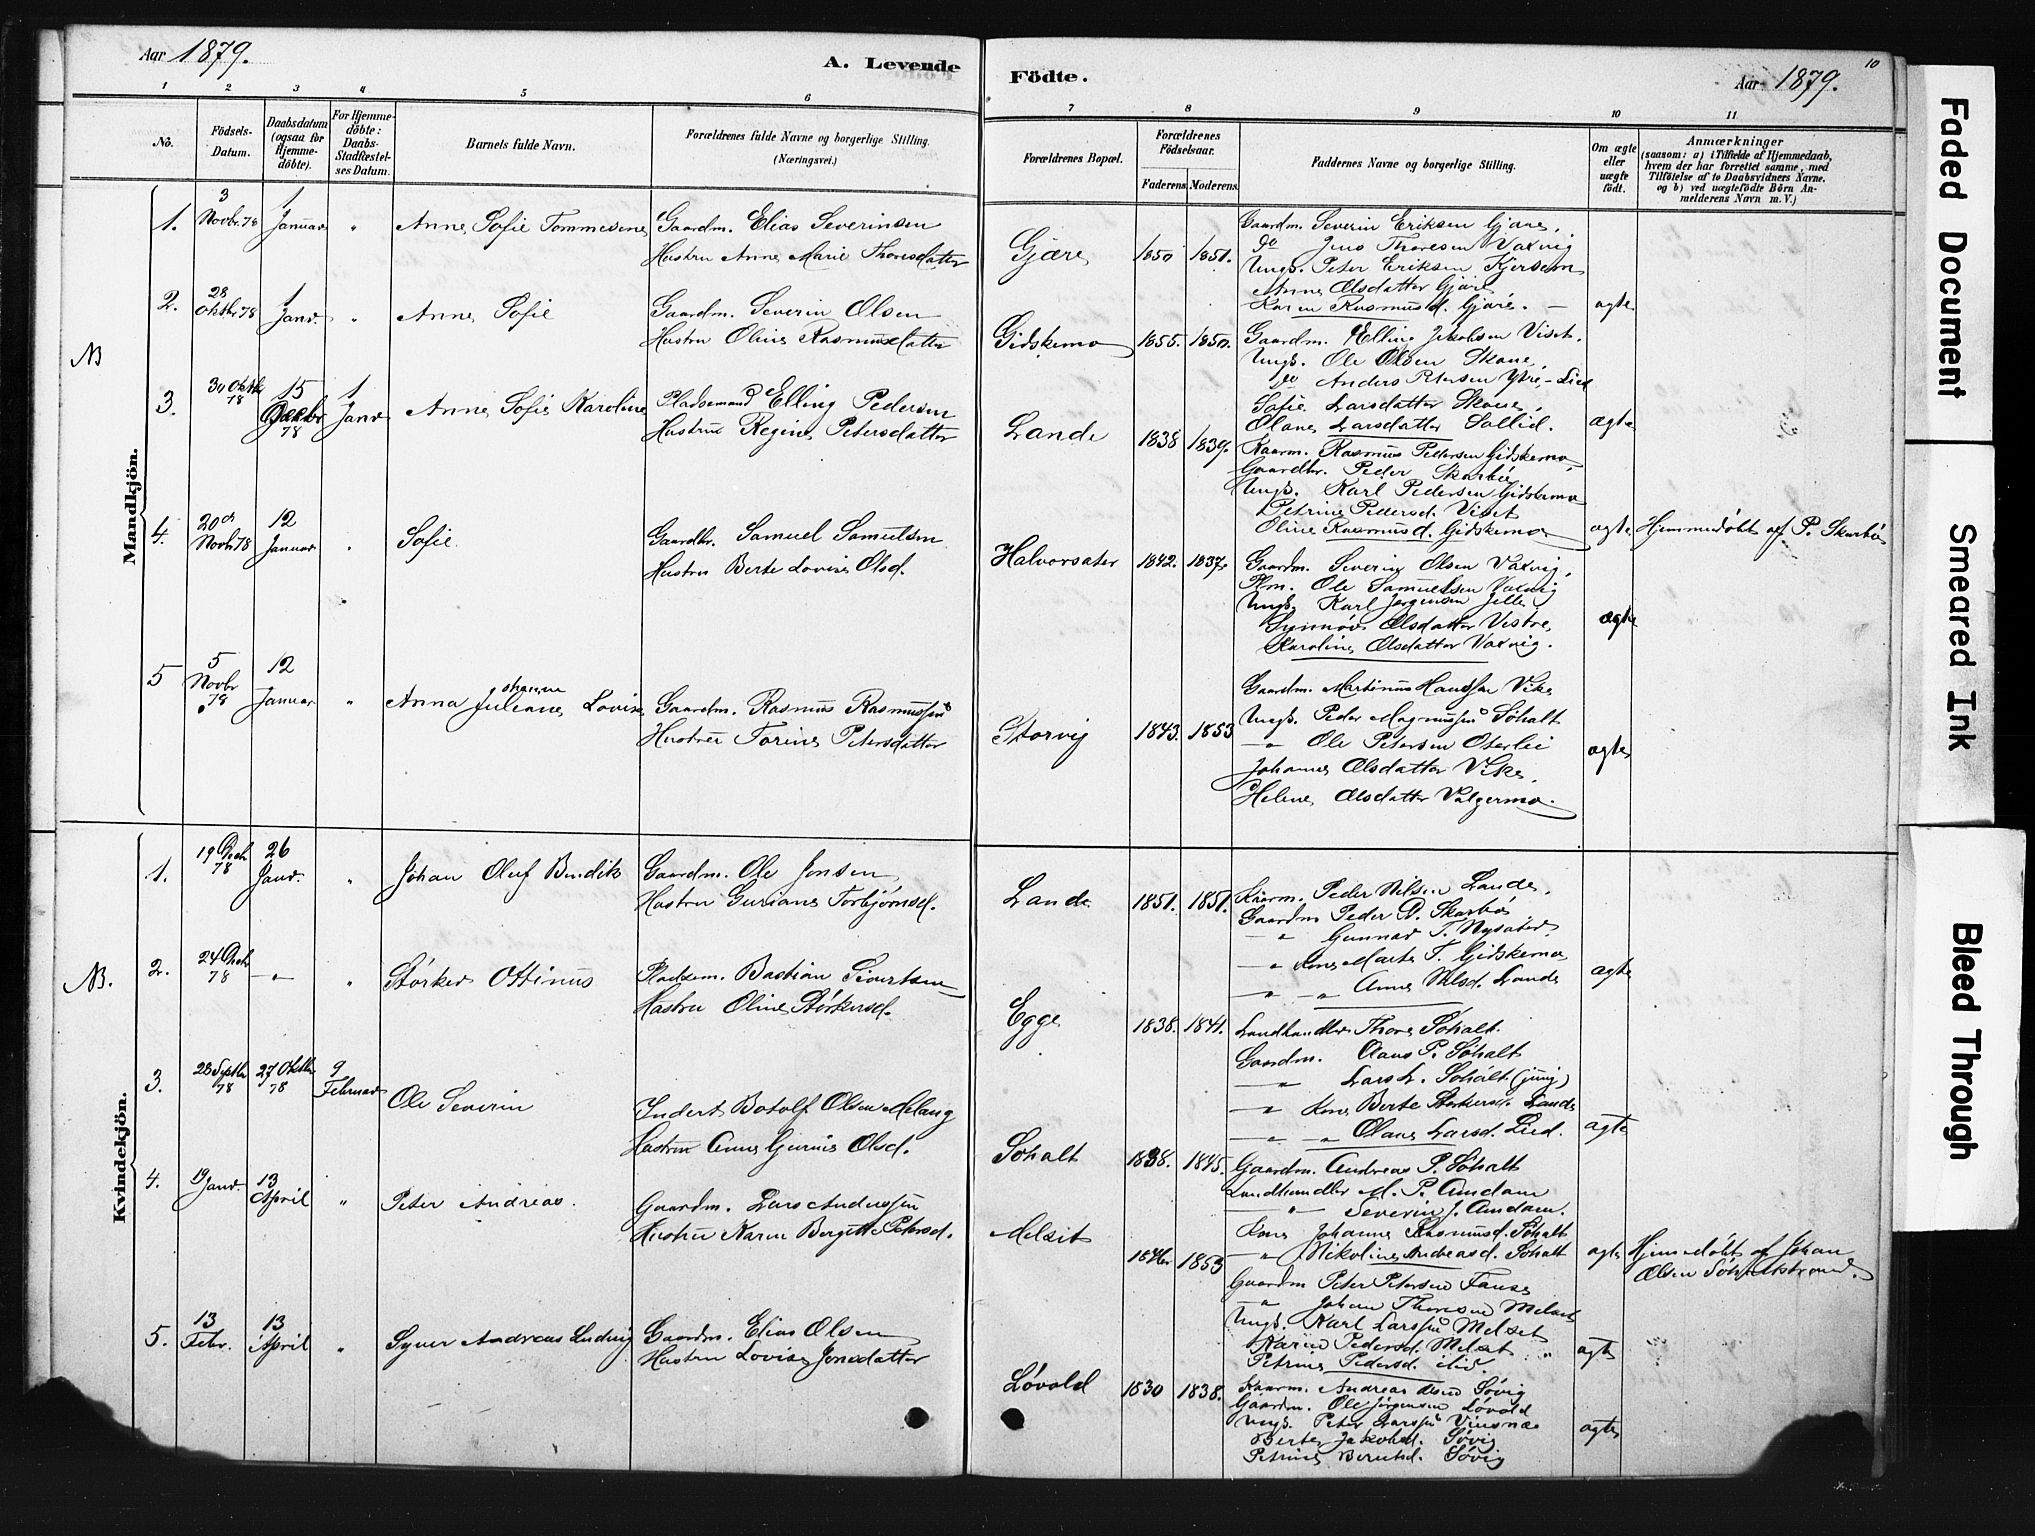 Aar 1879.
A. Levende
Födte.
Aar 1879.
10
1 2 3 4 5 6 7 8 9 10 11
No.
Födsels-
Datum.
Daabsdatum
(ogsaa for
Hjemme-
döbte).
For Hjemme-
döbte:
Daabs-
Stadfæstel-
ses Datum.
Barnets fulde Navn.
Forældrenes fulde Navne og borgerlige Stilling.
(Næringsvei.)
Forældrenes Bopæl.
Forældrenes
Födselsaar.
Faderens.
Moderens.
Faddernes Navne og borgerlige Stilling.
Om ægte
eller
uægte
födt.
Anmærkninger
(saasom: a) i Tilfælde af Hjemmedaab,
hvem der har forrettet samme, med
Tilföielse af to Daabsvidners Navne.
og b) ved uægtefödte Börn An-
melderens Navn m. V.)
Mandkjön.
NB
1.
3 Novbr. 78
1 Januar
"
Anne Sofie Tommesine
Gaardm. Elias Severinsen
Hustru Anne Marie Thoresdatter
Gjære
1850
1851.
Gaardm. Severin Eriksen Gjære.
do Jens Thoresen Vaxvig
Ungk. Peter Eriksen Kjersem
Anne Olsdatter Gjære
Karen Rasmusd. Gjære. —
ægte
2.
28 Oktbr 78
1 Janr.
"
Anne Sofie
Gaardm. Severin Olsen
Hustru Oline Rasmusdatter
Gidskemo
1855.
1850.
Gaardm. Elling Jakobsen Viset.
Ungk. Ole Olsen Skare,
do Anders Petersen Ytre-Lied
Sofie Larsdatter Skare,
Olane Larsdatter Sollid.
ægte
3.
30 Oktbr 78
15 Decbr 78
1 Janr
Anne Sofie Karoline
Pladsemand Elling Pedersen
Hustru Regine Petersdatter
Lande
1838
1839.
Kaarm. Rasmus Pedersen Gidskemo
Gaardbr. Peder Skarbö
Ungk. Karl Pedersen Gidskemo
Petrine Pedersd. Viset
Oline Rasmusd. Gidskemo
ægte
Hjemmedöbt af P. Skarbö
4.
20de Novbr 78
12 Januar
"
Sofie
Gaardbr. Samuel Samuelsen
Hustru Berte Lovise Olsd.
Halvorsæter
1842.
1837.
Gaardm. Severin Olsen Vaxvig,
Plm. Ole Samuelsen Vaxvig
Ungk. Karl Jørgensen Jelle
Synnöve Olsdatter Vestre,
Karoline Olsdatter Vaxvig.
ægte
5
5 Novbr 78
12 Januar
"
Johanne
Anna Juliane Lovise
Gaardm. Rasmus Rasmussen
Hustru Torine Petersdatter
Storvig
1843.
1853
Gaardm. Martinus Hansen Vike
Ungk. Peder Magnussen Söholt
—"— Ole Petersen Oterlei
Johanne Olsdatter Vike.
Helene Olsdatter Valgermo.
ægte
Kvindekjön.
NB.
1.
19 Decbr 78
26 Janr.
"
Johan Oluf Bendik
Gaardm. Ole Jonsen
Hustru Guriane Torbjörnsd.
Lande
1851.
1851.
Kaarm. Peder Nilsen Lande.
Gaardm Peder D. Skarbö
—"— Gunnar T. Nysæter.
—"— Kone Marte T. Gidskemo
—"— —"— Anne Nilsd. Lande
ægte
2.
24 Decbr 78
—"—
"
Störker Ottinus
Pladsem. Bastian Sivertsen
Hustru Oline Störkersd.
Egge
1838.
1841.
Landhandler Thore Söholt.
Gaardm. Claus P. Söholt
—"— Lars L. Söholt (jung)
—"— Kone Berte Störkersd. Lande
—"— —"— Olane Larsd. Lied.
ægte
3.
28 Septbr 78
27 Oktbr 78
9 Februar
Ole Severin
Inderst Botolf Olsen Melang
Hustru Anne Gurine Olsd.
Söholt
1838.
1845.
Gaardm. Andreas P. Söholt
Landhandler M. P. Amdam
—"— Severin J. Amdam.
Kone Johanne Rasmusd. Söholt
—"— Nikoline Andreasd. Söholt
ægte
Hjemmedöbt af Johan
Olsen Söholtstrand.
4.
19 Janr.
13 April
"
Peter Andreas.
Gaardm. Lars Anderssen
Hustru Karen Bergitte Petersd.
Melsit
1846
1853
Gaardm Peter Petersen Fause
" Johan Thoresen Melset
Ungk. Karl Larssen Melset
Karen Pedersd. Melset "
Petrine Pedersd. ibid.
ægte
5.
13 Febr.
13 April
"
Syver Andreas Ludvig
Gaardm. Elias Olsen
Hustru Lovise Jonsdatter
Lövold
1830
1838.
Kaarm. Andreas Olsen Sövig
Gaardm. Ole Jørgensen Lövold
Ungk. Peter Larssen Viksnes
Berte Jakobsd. Sövig
Petrine Berntsd. Sövig
ægte
Faded Document
Smeared Ink
Bleed Through